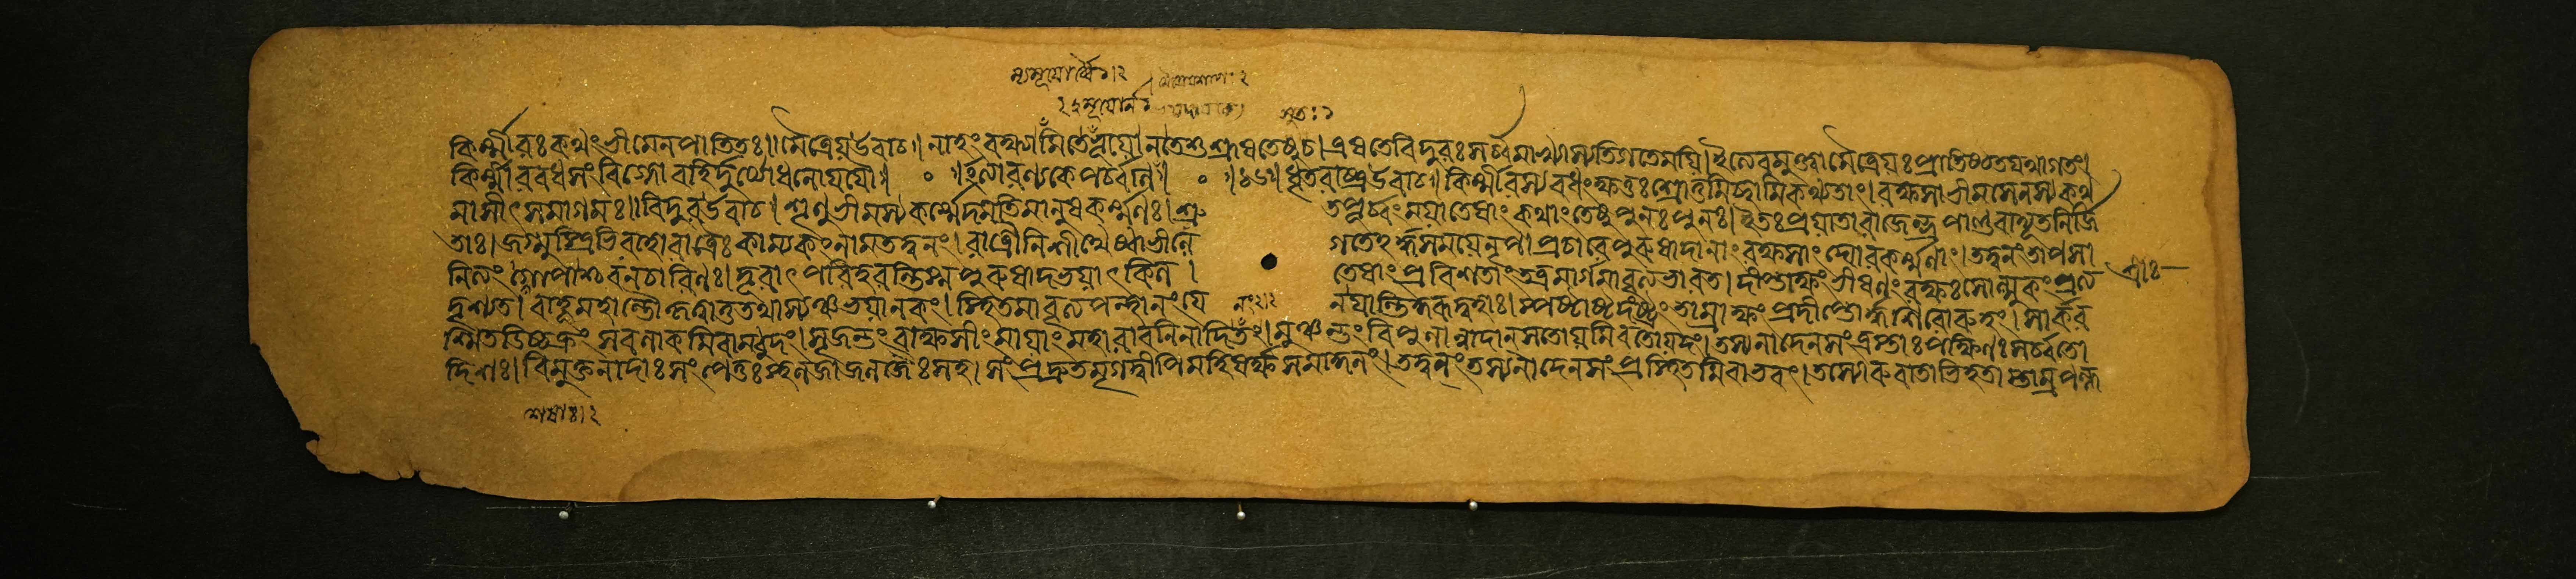 সুতঃ১
কির্ম্মীরঃ কথং ভীমেন পাতিতঃ॥ মৈত্রেয় উবাচ॥ নাহং বক্ষ্যামি তে শুশ্রূষতে এষ তে বিদুরঃ সর্ব্বমাখ্যাস্যতি গতে ময়ি। ইত্যেবমুক্ত্বা মৈত্রেয়ঃ প্রাতিষ্ঠত যথাগতং।
কির্ম্মীরবধসংবিগ্নো বহির্দুর্য্যোধনোযযৌ॥ ০ ॥ইত্যারণ্যকে পর্ব্বণি॥ ০ ॥ ধৃতরাষ্ট্র উবাচ॥ কির্ম্মীরস্য বধং ক্ষত্তঃ শ্রোতুমিচ্ছামি কথ্যতাং। রক্ষসা ভীমসেনস্য কথ
মাসীৎ সমাগমঃ॥ বিদুর উবাচ। শৃণু ভীমস্য কর্ম্মেদমতিমানুষকর্ম্মণঃ। শ্রুতপূর্ব্বং ময়া তেষাং কথাংতেষু পুনঃ পুনঃ। ইতঃ প্রয়াতা রাজেন্দ্র পাণ্ডবা দ্যূতনির্জি
তাঃ। জগ্মুস্ত্রিভিরহোরাত্রৈঃ কাম্যকং নাম তদ্বনং। রাত্রৌ নিশীথে গতেঽর্দ্ধসময়ে নৃপ। প্রচারে পুরুষাদানাং রক্ষসাং ঘোরকর্ম্মণাং। তদ্বনং তাপসা
নিত্যং গোপাশ্চ বনচারিণঃ। দূরাৎ পরিহরন্তি স্ম পুরুষাদভয়াৎ কিল। তেষাং প্রবিশতাং তত্র মার্গমাবৃত্য ভারত। দীপ্তাক্ষং ভীষণং রক্ষঃ সোল্মুকং প্রত্য
দৃশ্যত। বাহূ মহান্তৌ কৃত্বা তু তথাস্যঞ্চ ভয়ানকং। স্থিতমাবৃত্য পন্থানং যেন যান্তি কুরূদ্বহাঃ। স্পষ্টাষ্টদংষ্ট্রং তাম্রাক্ষং প্রদীপ্তোর্দ্ধশিরোরুহং। সার্কর
শ্মিতডিচ্চক্রং সবলাকমিবাম্বুদং। সৃজন্তং রাক্ষসীং মায়াং মহারাবনিনাদিতং। মুঞ্চন্তং বিপুলান্নাদান্ সতোয়মিব তোয়দং। তস্য নাদেন সংত্রস্তাঃ পক্ষিণঃ সর্ব্বতো
দিশঃ। বিমুক্তনাদাঃ সংপেতুঃ স্থলজা জলজৈঃ সহ। সংপ্রদ্রুতমৃগদ্বীপিমহিষর্ক্ষসমাকুলং। তদ্বনং তস্য নাদেন সংপ্রস্থিতমিবাভবৎ। তস্যোরুবাতাভিহতা তাম্রপল্ল